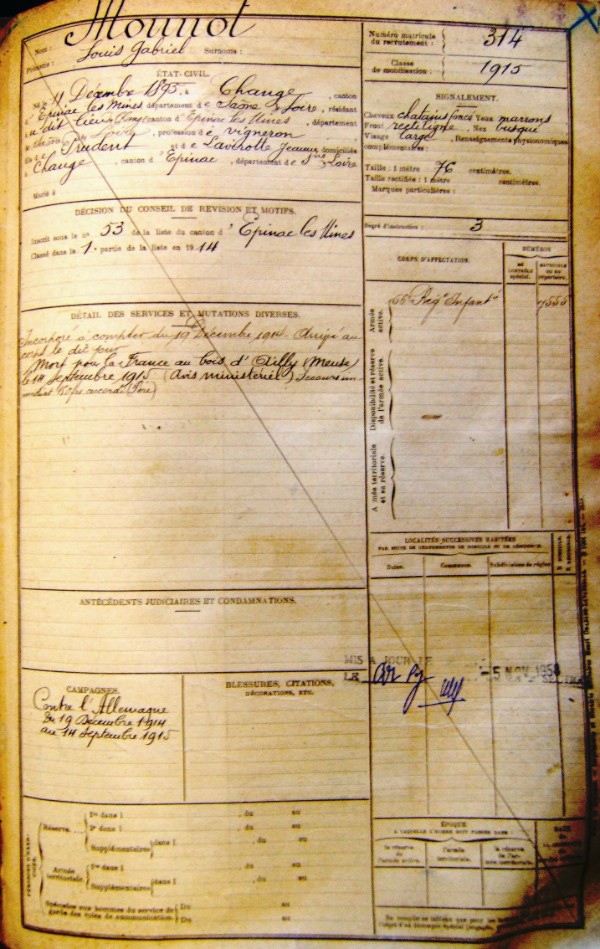 Mounot
Nom :
Prénoms : Louis Gabriel Surnoms :
Numéro matricule
du recrutement : 314
Classe
de mobilisation : 1915
ÉTAT-CIVIL.
Né le 11 Décembre 1895, à Change, canton
d'Epinac les Mines département de Saône & Loire, résidant
canton d'Epinac les Mines, département
profession de vigneron
Prudent et de Lavirotte Jeanne domiciliés
Change, canton d'Epinac, département de S. & Loire
Marié à
SIGNALEMENT.
Cheveux chatains foncé Yeux marrons
Front rectiligne, Nez busqué
Visage large, Renseignements physionomiques
complémentaires :
Taille : 1 mètre 76 centimètres.
Taille rectifiée : 1 mètre centimètres.
Marques particulières :
DÉCISION DU CONSEIL DE RÉVISION ET MOTIFS.
Inscrit sous le n° 53 de la liste du canton d'Epinac les Mines
Classé dans la 1e partie de la liste en 1914
Degré d'instruction : 3
CORPS D'AFFECTATION.
NUMÉROS
Armée
active.
Régt Infantie
7555
Disponibilité et réserve
de l'armée active.
Armée territoriale
et sa réserve.
DÉTAIL DES SERVICES ET MUTATIONS DIVERSES.
Incorporé à compter du 19 Décembre 1914. Arrivé au
corps le dit jour
Mort pour la France au bois d'Ailly (Meuse)
le 14 Septembre 1915 (Avis ministériel) Secours im-
médiat
LOCALITÉS SUCCESSIVES HABITÉES
PAR SUITE DE CHANGEMENTS DE DOMICILE OU DE RÉSIDENCE.
Dates.
Communes.
Subdivisions de région.
ANTÉCÉDENTS JUDICIAIRES ET CONDAMNATIONS.
MIS A JOUR LE
LE
5 NOV 1958
CAMPAGNES.
Contre l'Allemagne
du 19 Décembre 1914
au 14 Septembre 1915
BLESSURES, CITATIONS,
DÉCORATIONS, ETC.
Réserve.
1re dans l , du au
2e dans l , du au
Supplémentaires dans l , du au
Armée
territoriale.
1re dans l , du au
Supplémentaires dans l , du au
Spéciales aux hommes du service de
garde des voies de communication. Du au
Du au
ÉPOQUE
À LAQUELLE L'HOMME DOIT PASSER DANS :
la réserve
de
l'armée active.
l'armée
territoriale.
la réserve
de l'ar-
mée territoriale.